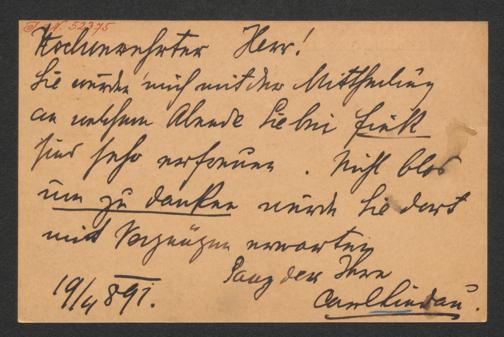 I. N. 52375
Hochverehrter Herr!
Sie würden mich mit der Mittheilung
an welchem Abende Sie bei
sind sehr erfreuen. Nicht blos
um zu danken würde Sie dort
mit Vergnügen erwarten
Ganz der Ihre
Carl Lindau.
19/4 891.